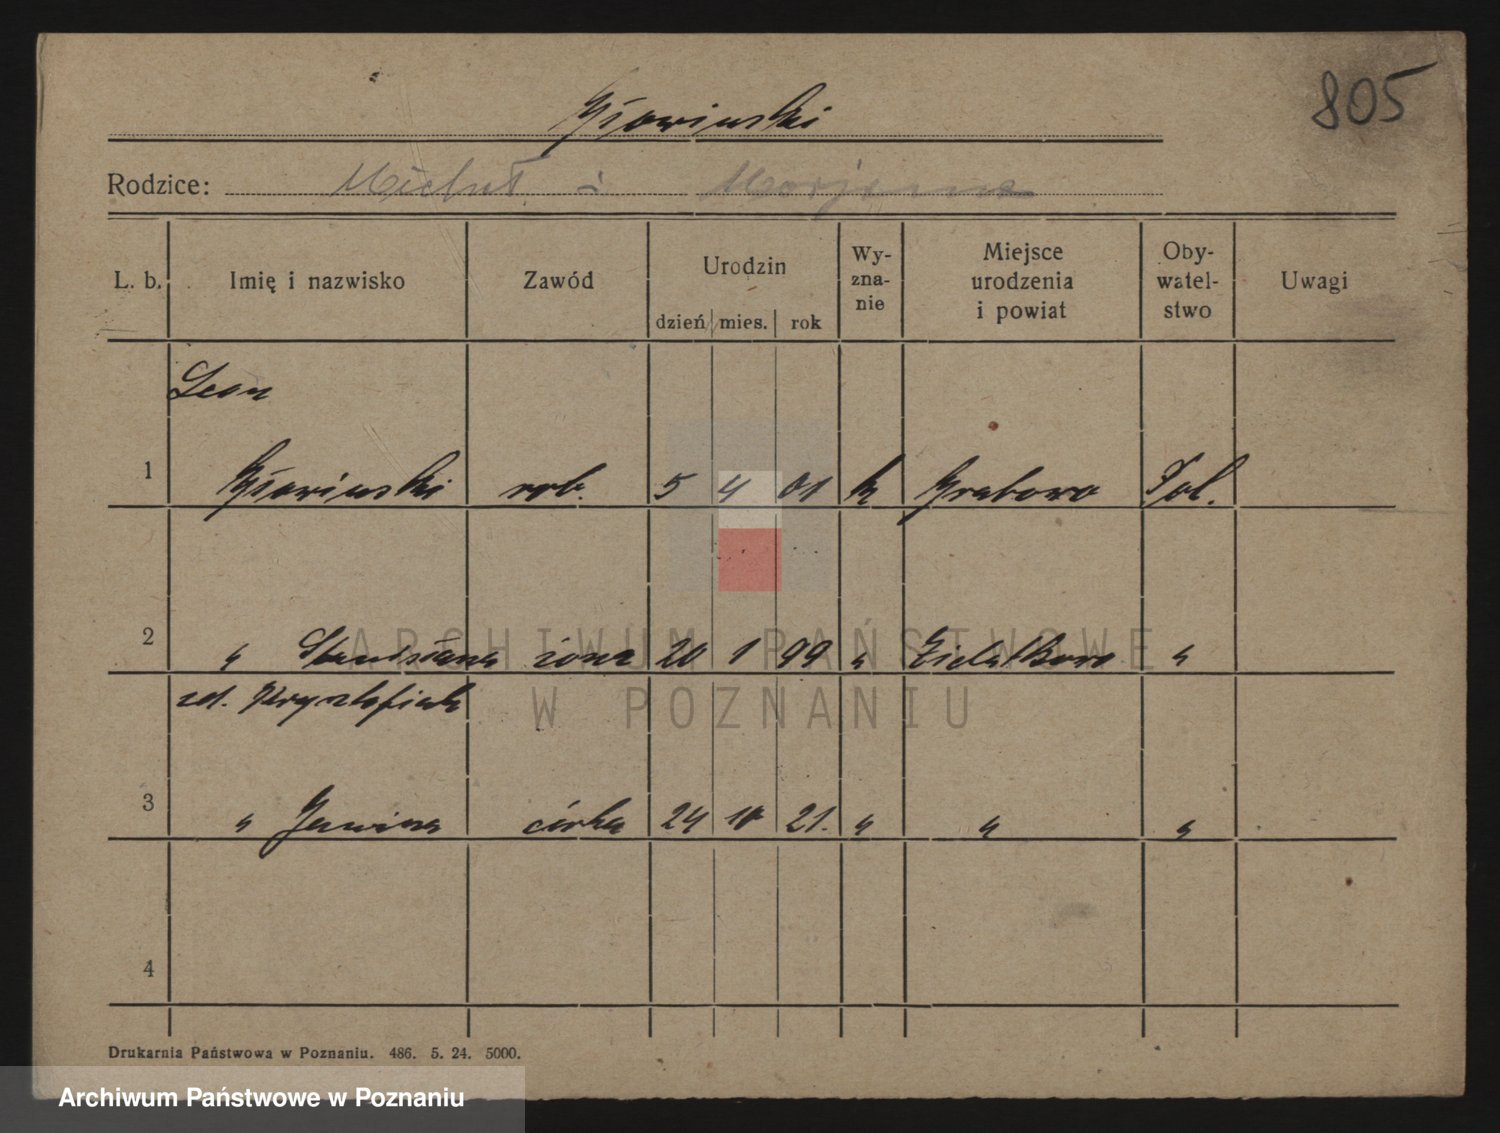 805
Kłowinski
Rodzice: Michał i Marjanna
L. b. Imię i nazwisko Zawód Urodzin dzień mies. rok Wy-zna-nie Miejsce urodzenia i powiat Oby-watel-stwo Uwagi
Leon
1 Kłowinski rob. 5 4 01 k Grabowo Pol.
2 " Stanisława żona 20 1 99 " "
zd. Krysztofiak
3 " Janina córka 24 10 21. " " "
4
Drukarnia Państwowa w Poznaniu. 486. 5. 24. 5000.
ARCHIWUM PAŃSTWOWE
W POZNANIU
Archiwum Państwowe w Poznaniu